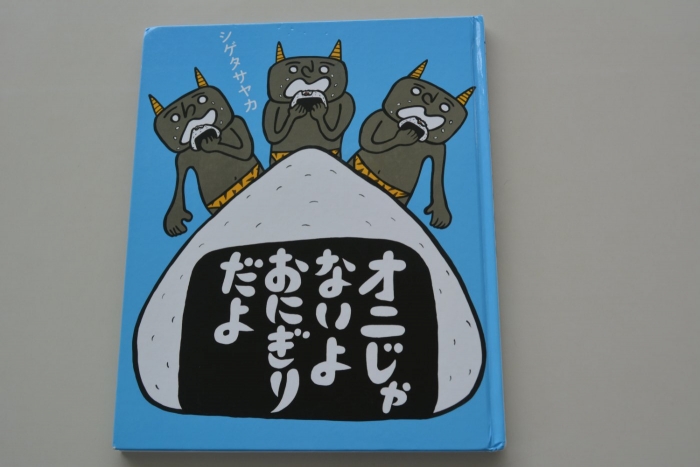 シゲタサヤカ
オニじゃ
ないよ
おにぎり
だよ